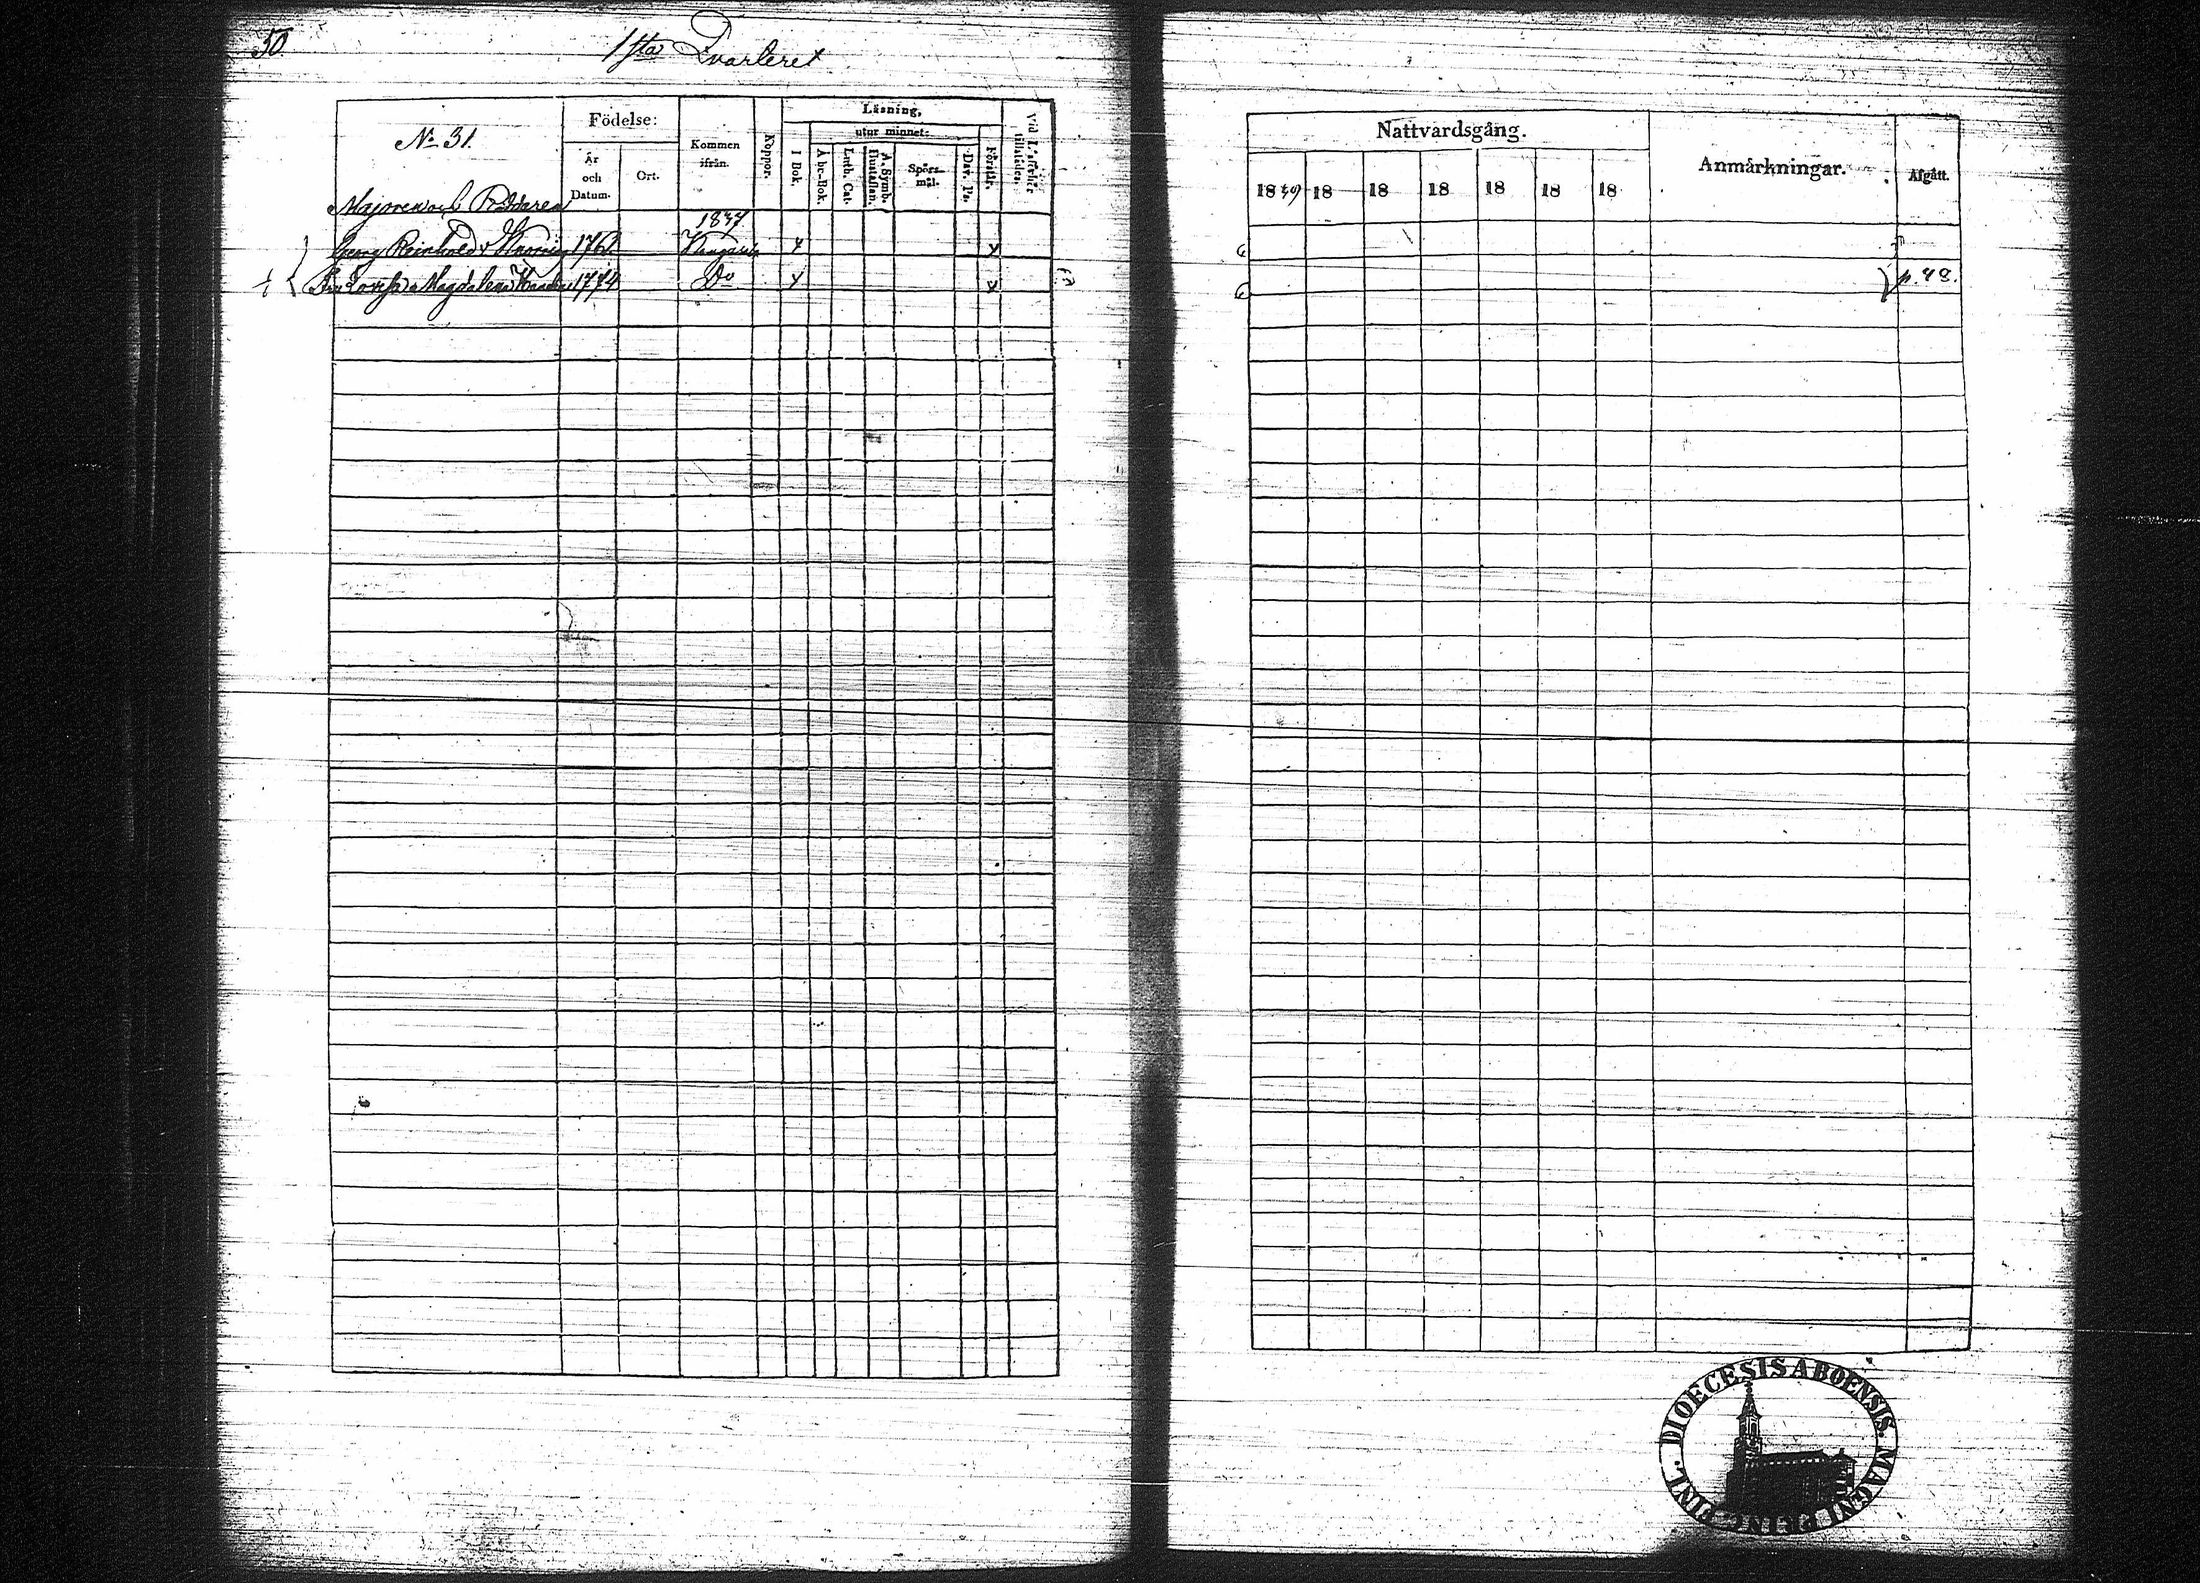 50
1sta Qvarteret
No 31.
Födelse:
År och Datum.
Ort.
Kommen ifrån.
Koppor.
Läsning,
utur minnet:
I Bok.
Abc-Bok.
Luth. Cat.
A. Symb. Hustaflan.
Spörs-mål.
Dav. Ps.
Förstår.
Vid Läseförhör tillstädes.
Majoren och Riddaren
1837
Georg Reinhold v 1761 x x
Lovisa Magdalena 1774 Do x x
Nattvardsgång.
1839 18 18 18 18 18 18
Anmärkningar.
Afgått.
6
6
p. 48.
DIOECESIS ABOENSIS. MAGNI PRINC. FINL.